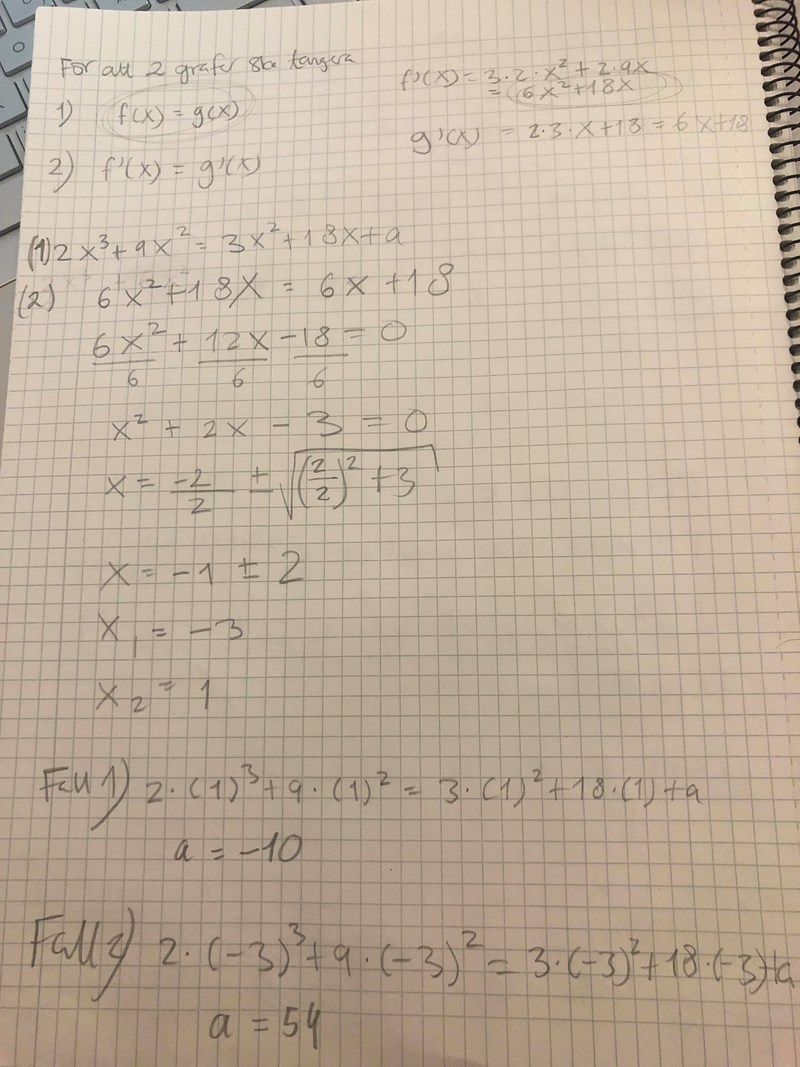 För att 2 grafer ska tangera
1) f(x) = g(x)
2) f'(x) = g'(x)
f'(x) = 3·2·x² + 2·9x
= 6x²+18x
g'(x) = 2·3·x+18 = 6x+18
(1) 2x³+9x² = 3x²+18x+a
(2) 6x²+18x = 6x+18
6x²/6 + 12x/6 - 18/6 = 0
x² + 2x - 3 = 0
x = -2/2 ± √((2/2)² + 3)
x = -1 ± 2
x₁ = -3
x₂ = 1
Fall 1) 2·(1)³+9·(1)² = 3·(1)²+18·(1)+a
a = -10
Fall 2) 2·(-3)³+9·(-3)² = 3·(-3)²+18·(-3)+a
a = 54